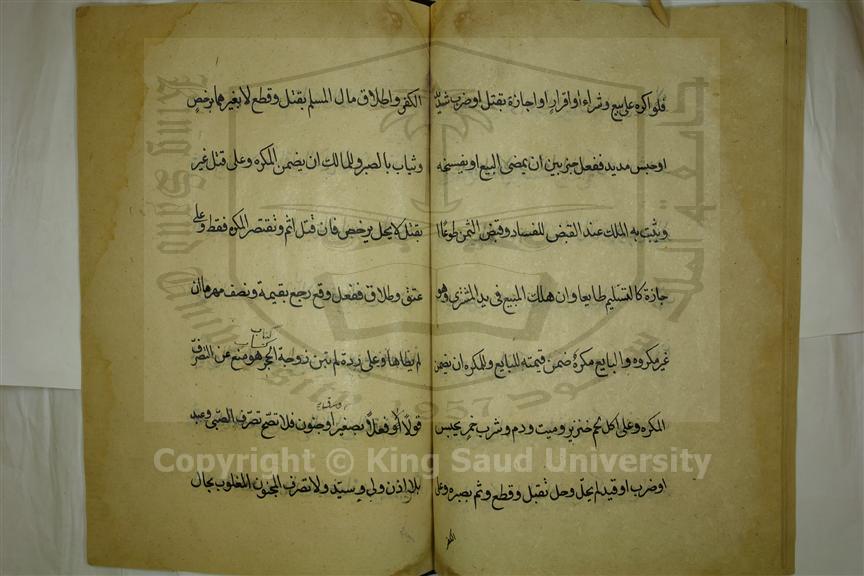 فلو اكره على بيع وشراء او اقرار او اجازة بقتل او ضرب شديد
او حبس مديد ففعل خير بين ان يمضى البيع او يفسخه
ويثبت به الملك عند القبض للفساد وقبض الثمن طوعا ا
جازة كالتسليم طايعا وان هلك المبيع فى يد المشترى وهو
غير مكروه والبايع مكره ضمن قيمته للبايع وللمكره ان يضمن
المكره وعلى اكل لحم خنزير وميت ودم وشرب خمر بحبس
او ضرب او قيد لم يحل وحل بقتل وقطع واثم بصبره وعلى
الكفر
الكفر واطلاق مال المسلم بقتل وقطع لا بغيرهما يرخص
ويثاب بالصبر وللمالك ان يضمن المكره وعلى قتل غير
بقتل لا يحل يرخص فان قتل اثم وتقتص المكره فقط وعلى
عتق وطلاق ففعل وقع رجع بقيمة ونصف مهرها ان
كتاب
لم يطاها وعلى ردة لم تبن زوجة الحجر هو منع عن التصرف
قولا لا فعلا بصغير او جنون فلا تصح تصرف الصبى وعبد
بلا اذن ولى وسيد ولا تصرف المجنون المغلوب بحال
Copyright © King Saud University
King Saud University
جامعة الملك سعود
1957